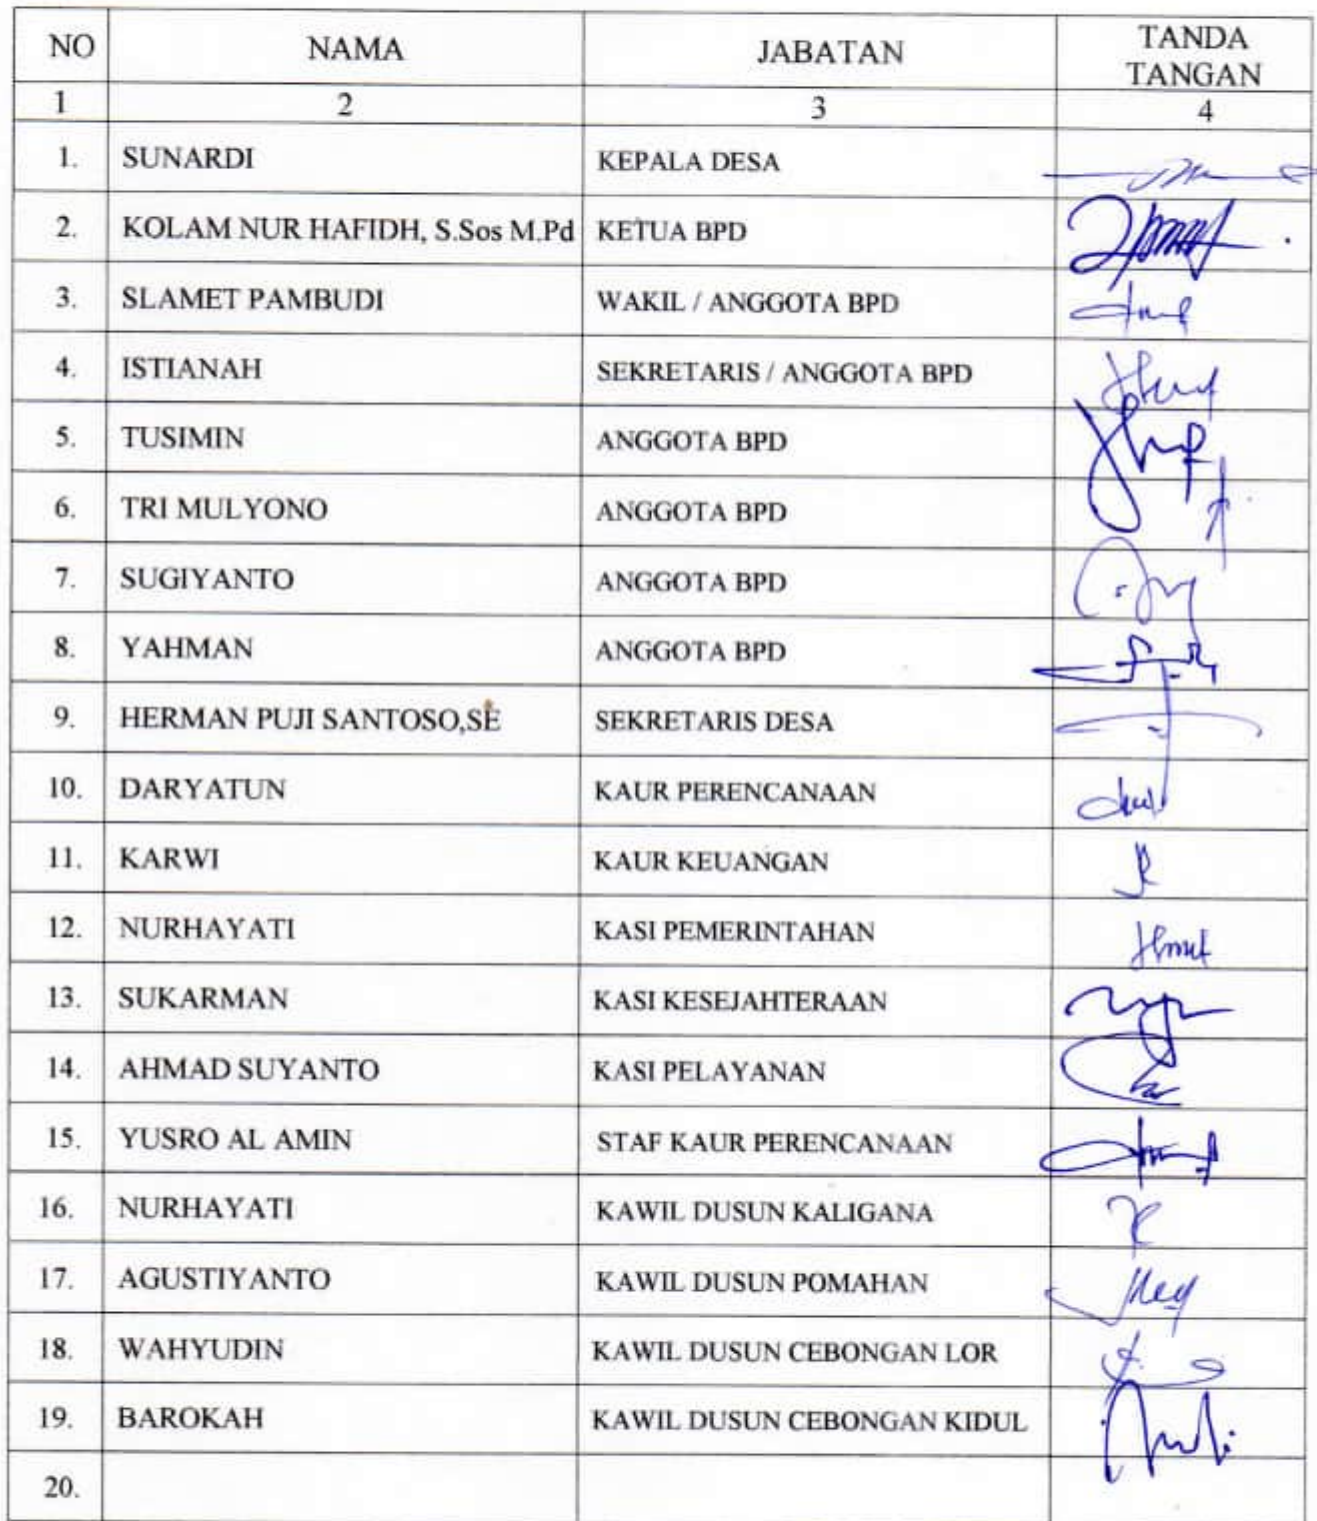 NO NAMA JABATAN TANDA TANGAN
1 2 3 4
1. SUNARDI KEPALA DESA
2. KOLAM NUR HAFIDH, S.Sos M.Pd KETUA BPD
3. SLAMET PAMBUDI WAKIL / ANGGOTA BPD
4. ISTIANAH SEKRETARIS / ANGGOTA BPD
5. TUSIMIN ANGGOTA BPD
6. TRI MULYONO ANGGOTA BPD
7. SUGIYANTO ANGGOTA BPD
8. YAHMAN ANGGOTA BPD
9. HERMAN PUJI SANTOSO,SE SEKRETARIS DESA
10. DARYATUN KAUR PERENCANAAN
11. KARWI KAUR KEUANGAN
12. NURHAYATI KASI PEMERINTAHAN
13. SUKARMAN KASI KESEJAHTERAAN
14. AHMAD SUYANTO KASI PELAYANAN
15. YUSRO AL AMIN STAF KAUR PERENCANAAN
16. NURHAYATI KAWIL DUSUN KALIGANA
17. AGUSTIYANTO KAWIL DUSUN POMAHAN
18. WAHYUDIN KAWIL DUSUN CEBONGAN LOR
19. BAROKAH KAWIL DUSUN CEBONGAN KIDUL
20.